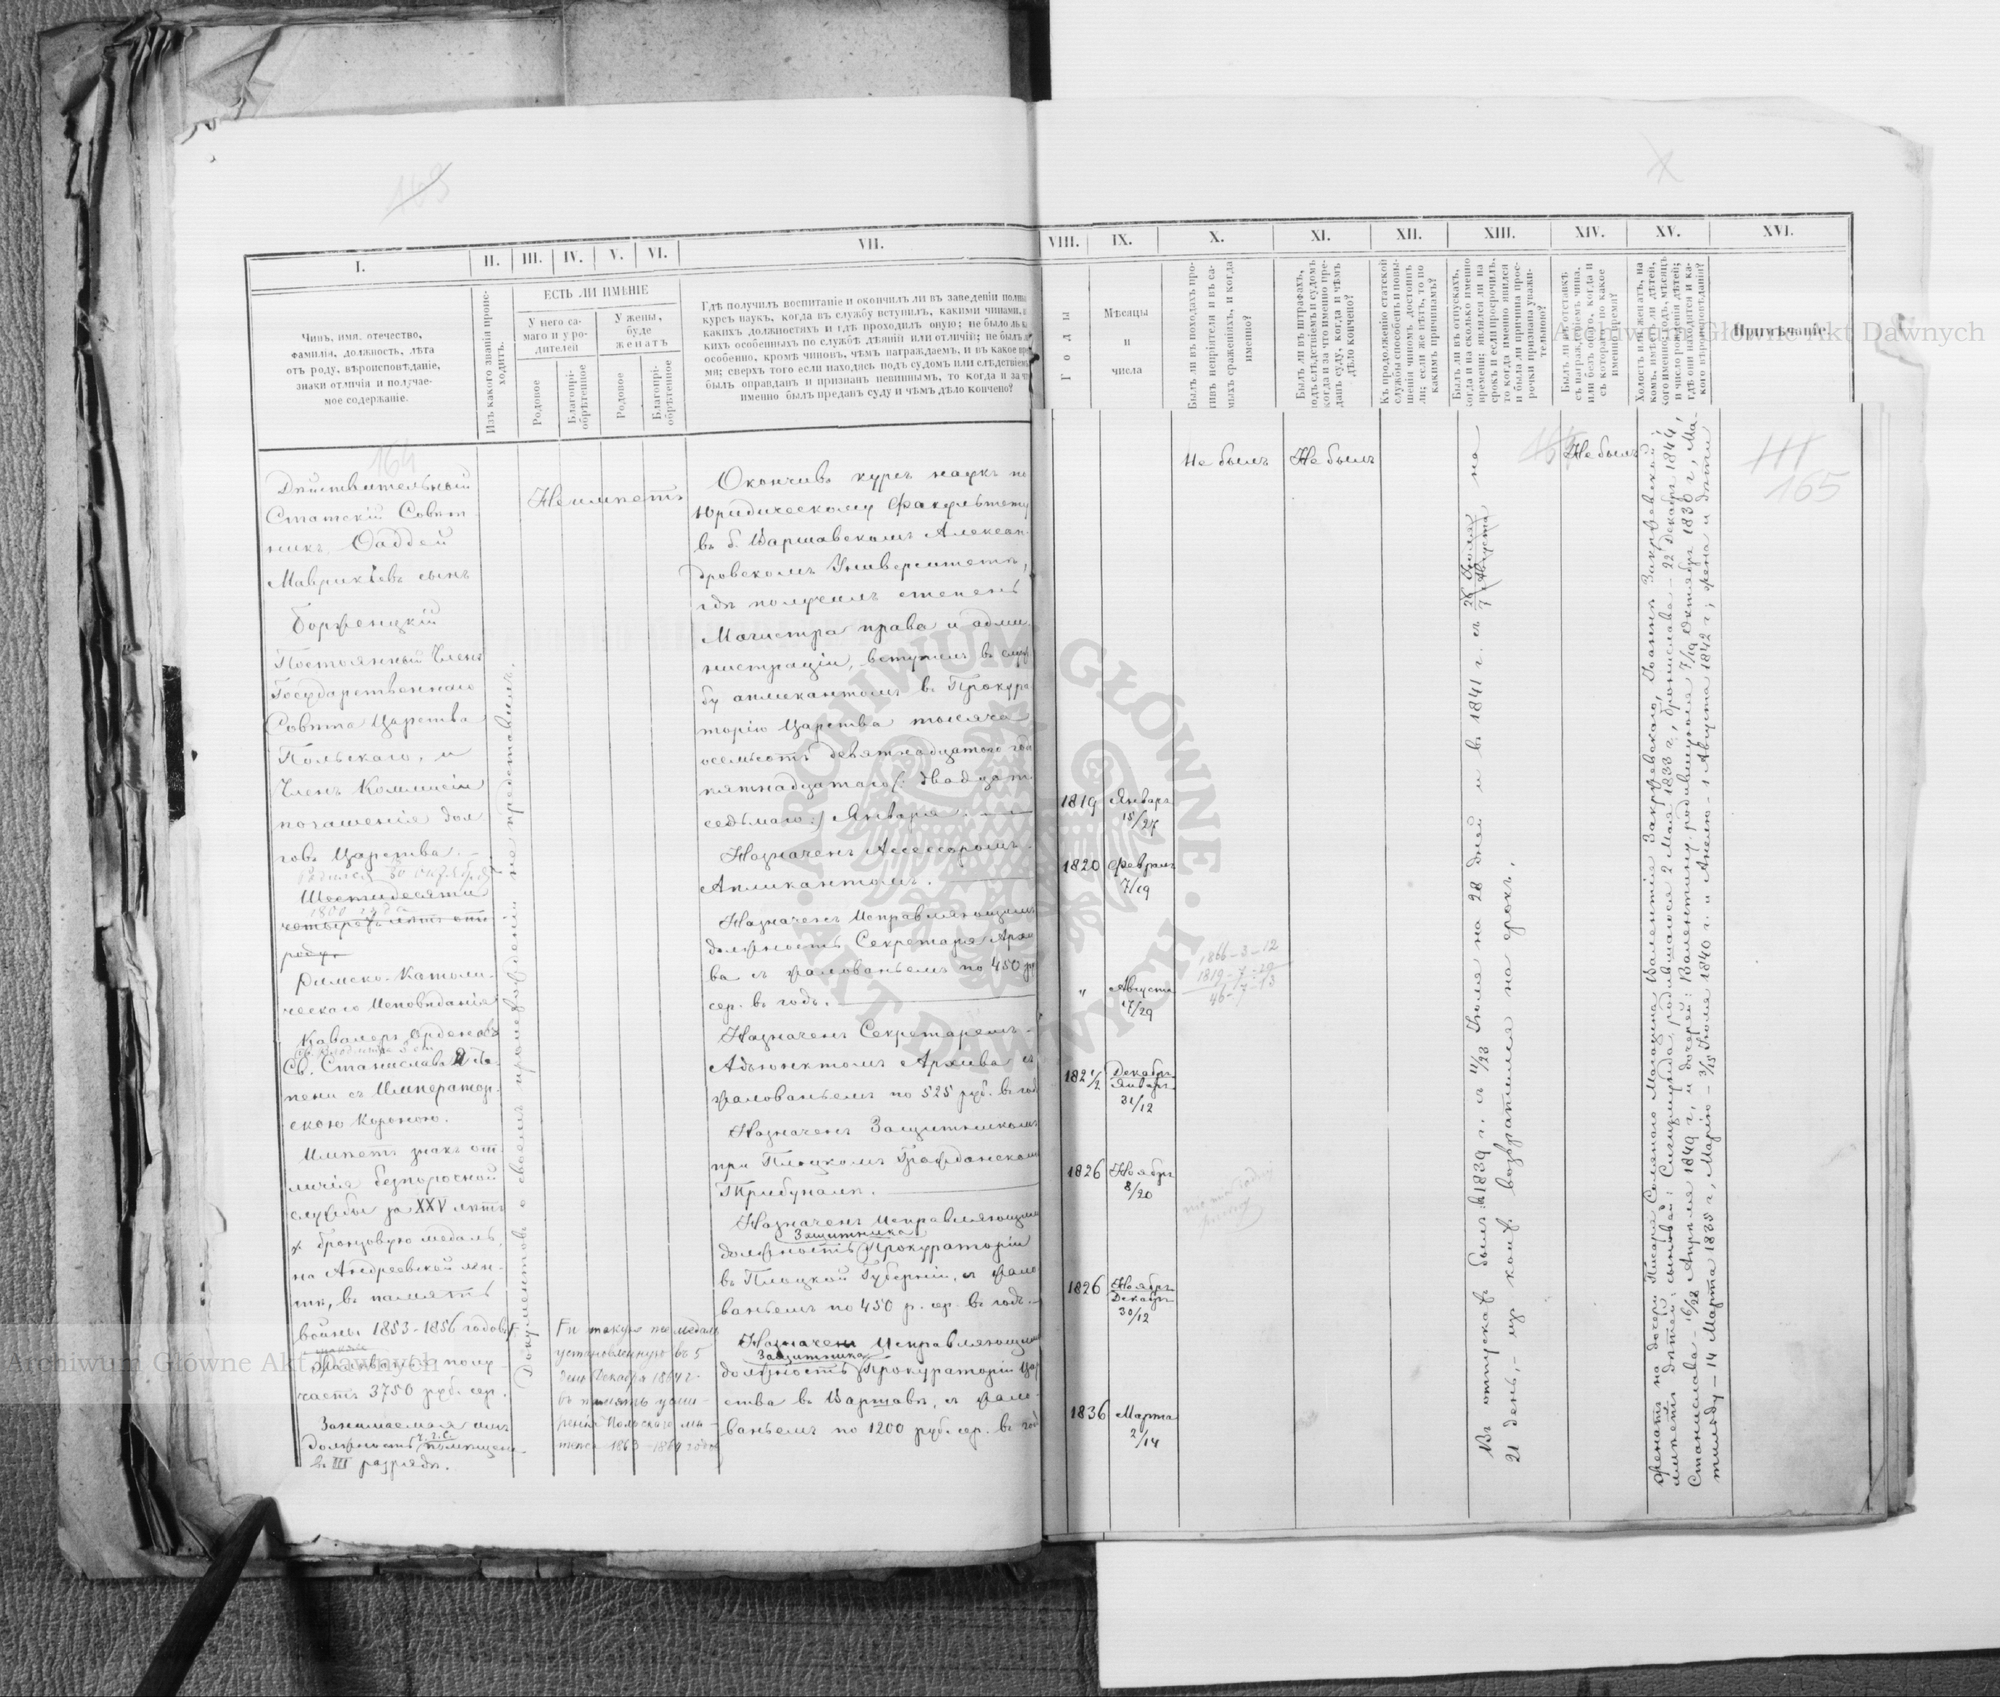 165
I.
II.
III.
IV.
V.
VI.
VII.
VIII.
IX.
X.
XI.
XII.
XIII.
XIV.
XV.
XVI.
Чинъ, имя, отечество,
фамилія, должность, лѣта
отъ роду, вѣроисповѣданіе,
знаки отличія и получае-
мое содержаніе.
Изъ какого званія происходитъ.
ЕСТЬ ЛИ ИМѢНІЕ
У него са-
маго и у ро-
дителей
У жены,
буде
женатъ
Родовое
Благопрі-
обрѣтенное
Родовое
Благопрі-
обрѣтенное
Гдѣ получилъ воспитаніе и окончилъ ли въ заведеніи полный
курсъ наукъ, когда въ службу вступилъ, какими чинами, въ
какихъ должностяхъ и гдѣ проходилъ оную; не было ли ка-
кихъ особенныхъ по службѣ дѣяній или отличій; не былъ ли
особенно, кромѣ чиновъ, чѣмъ награждаемъ, и въ какое вре-
мя; сверхъ того если находясь подъ судомъ или слѣдствіемъ
былъ оправданъ и признанъ невиннымъ, то когда и за что
именно былъ преданъ суду и чѣмъ дѣло кончено?
Годы
Мѣсяцы
и
числа
Былъ ли въ походахъ про-
тивъ непріятеля и въ са-
мыхъ сраженіяхъ, и когда
именно?
Былъ ли въ штрафахъ,
подъ слѣдствіемъ и судомъ
когда и за что именно пре-
данъ суду, когда и чѣмъ
дѣло кончено?
Къ продолженію статской
службы способенъ и повы-
шенія чиномъ достоинъ
ли; если же нѣтъ, то по
какимъ причинамъ?
Былъ ли въ отпускахъ,
когда и на сколько именно
времени; явился ли на
срокъ и если просрочилъ,
то когда именно явился
и была ли причина прос-
рочки признана уважи-
тельною?
Былъ ли въ отставкѣ
съ награжденіемъ чина,
или безъ онаго, когда и
съ котораго по какое
именно время?
Холостъ или женатъ, на
комъ, имѣетъ ли дѣтей,
кого именно; годъ, мѣсяцъ
и число рожденія дѣтей;
гдѣ они находятся и ка-
кого вѣроисповѣданія?
Примѣчаніе.
164
Дѣйствительный
Статскій Совѣт-
никъ Фаддей
Маврикіевъ сынъ
Борженцкій
Постоянный Членъ
Государственнаго
Совѣта Царства
Польскаго, и
Членъ Коммисіи
погашенія дол
говъ Царства.
Шестидесяти
1800 года
четырехъ лѣтъ отъ
роду
Римско-Католи-
ческаго Исповѣданія
Кавалеръ Орденовъ
Св. Станислава 2 сте-
пени съ Император-
скою Короною.
Имѣетъ знакъ от
личія безпорочной
службы за XXV лѣтъ
и бронзовую медаль,
на Андреевской лен-
тѣ, въ память
войны 1853-1856 годовъ
Жалованья полу-
чаетъ 3750 руб. сер.
Занимаемая имъ
должность помѣщен
въ III разрядѣ.
Документовъ о своемъ происхожденіи не представилъ.
Не имѣетъ
и такую же медаль
установленную въ 5
день Декабря 1864 г.
въ память усми-
ренія Польскаго мя-
тежа 1863-1864 годовъ
Окончивъ курсъ наукъ по
Юридическому Факультету
въ б. Варшавскомъ Алексан-
дровскомъ Университетѣ,
гдѣ получилъ степень
Магистра права и адми-
нистраціи, вступилъ въ служ
бу апликантомъ въ Прокура
торію Царства тысяча
осемьсотъ девятнадцатаго года
пятнадцатаго /: двадцать
седьмаго :/ Января.
Назначенъ Ассессоромъ-
Апликантомъ.
Назначенъ Исправляющимъ
должность Секретаря Архи
ва съ жалованьемъ по 450 р.
сер. въ годъ.
Назначенъ Секретаремъ-
Адъюнктомъ Архива съ
жалованьемъ по 525 руб. въ годъ
Назначенъ Защитникомъ
при Плоцкомъ Гражданскомъ
Трибуналѣ.
Назначенъ Исправляющимъ
Защитника
должность Прокураторіи
въ Плоцкой Губерніи, съ жало
ваньемъ по 450 р. сер. въ годъ.
Назначенъ Исправляющимъ
Защитника
должность Прокураторіи Цар
ства въ Варшавѣ, съ жало-
ваньемъ по 1200 руб. сер. въ годъ
1819 Января
15/27
1820 Февраля
7/19
" Августа
17/29
1821/2 Декабря
Января
31/12
1826 Ноября
8/20
1826 Ноября
Декабря
30/12
1836 Марта
2/14
Не былъ
1866-3-12
1819-7-29
46-7-13
Не былъ
Въ отпускахъ былъ: въ 1839 г. съ 11/23 Іюля на 28 дней и въ 1841 г. съ 26 Іюля/7 Августа на
21 день, - изъ коихъ возвратился на срокъ.
Не былъ
Женатъ на дочери Писаря Солянаго Магазина Валентія Закржевскаго, Іоаннѣ Закржевской;
имѣетъ дѣтей: сыновей: Сигизмунда, родившагося 2 Мая 1833 г., Бронислава - 22 Декабря 1844,
Станислава - 16/28 Апрѣля 1849 г., и дочерей: Валентину, родившуюся 7/19 Октября 1830 г., Ма-
тильду - 14 Марта 1835 г., Марію - 3/15 Іюля 1840 г. и Анелю - 1 Августа 1842 г.; жена и дѣти
165
Archiwum Główne Akt Dawnych
Archiwum Główne Akt Dawnych
ARCHIWUM GŁÓWNE AKT DAWNYCH